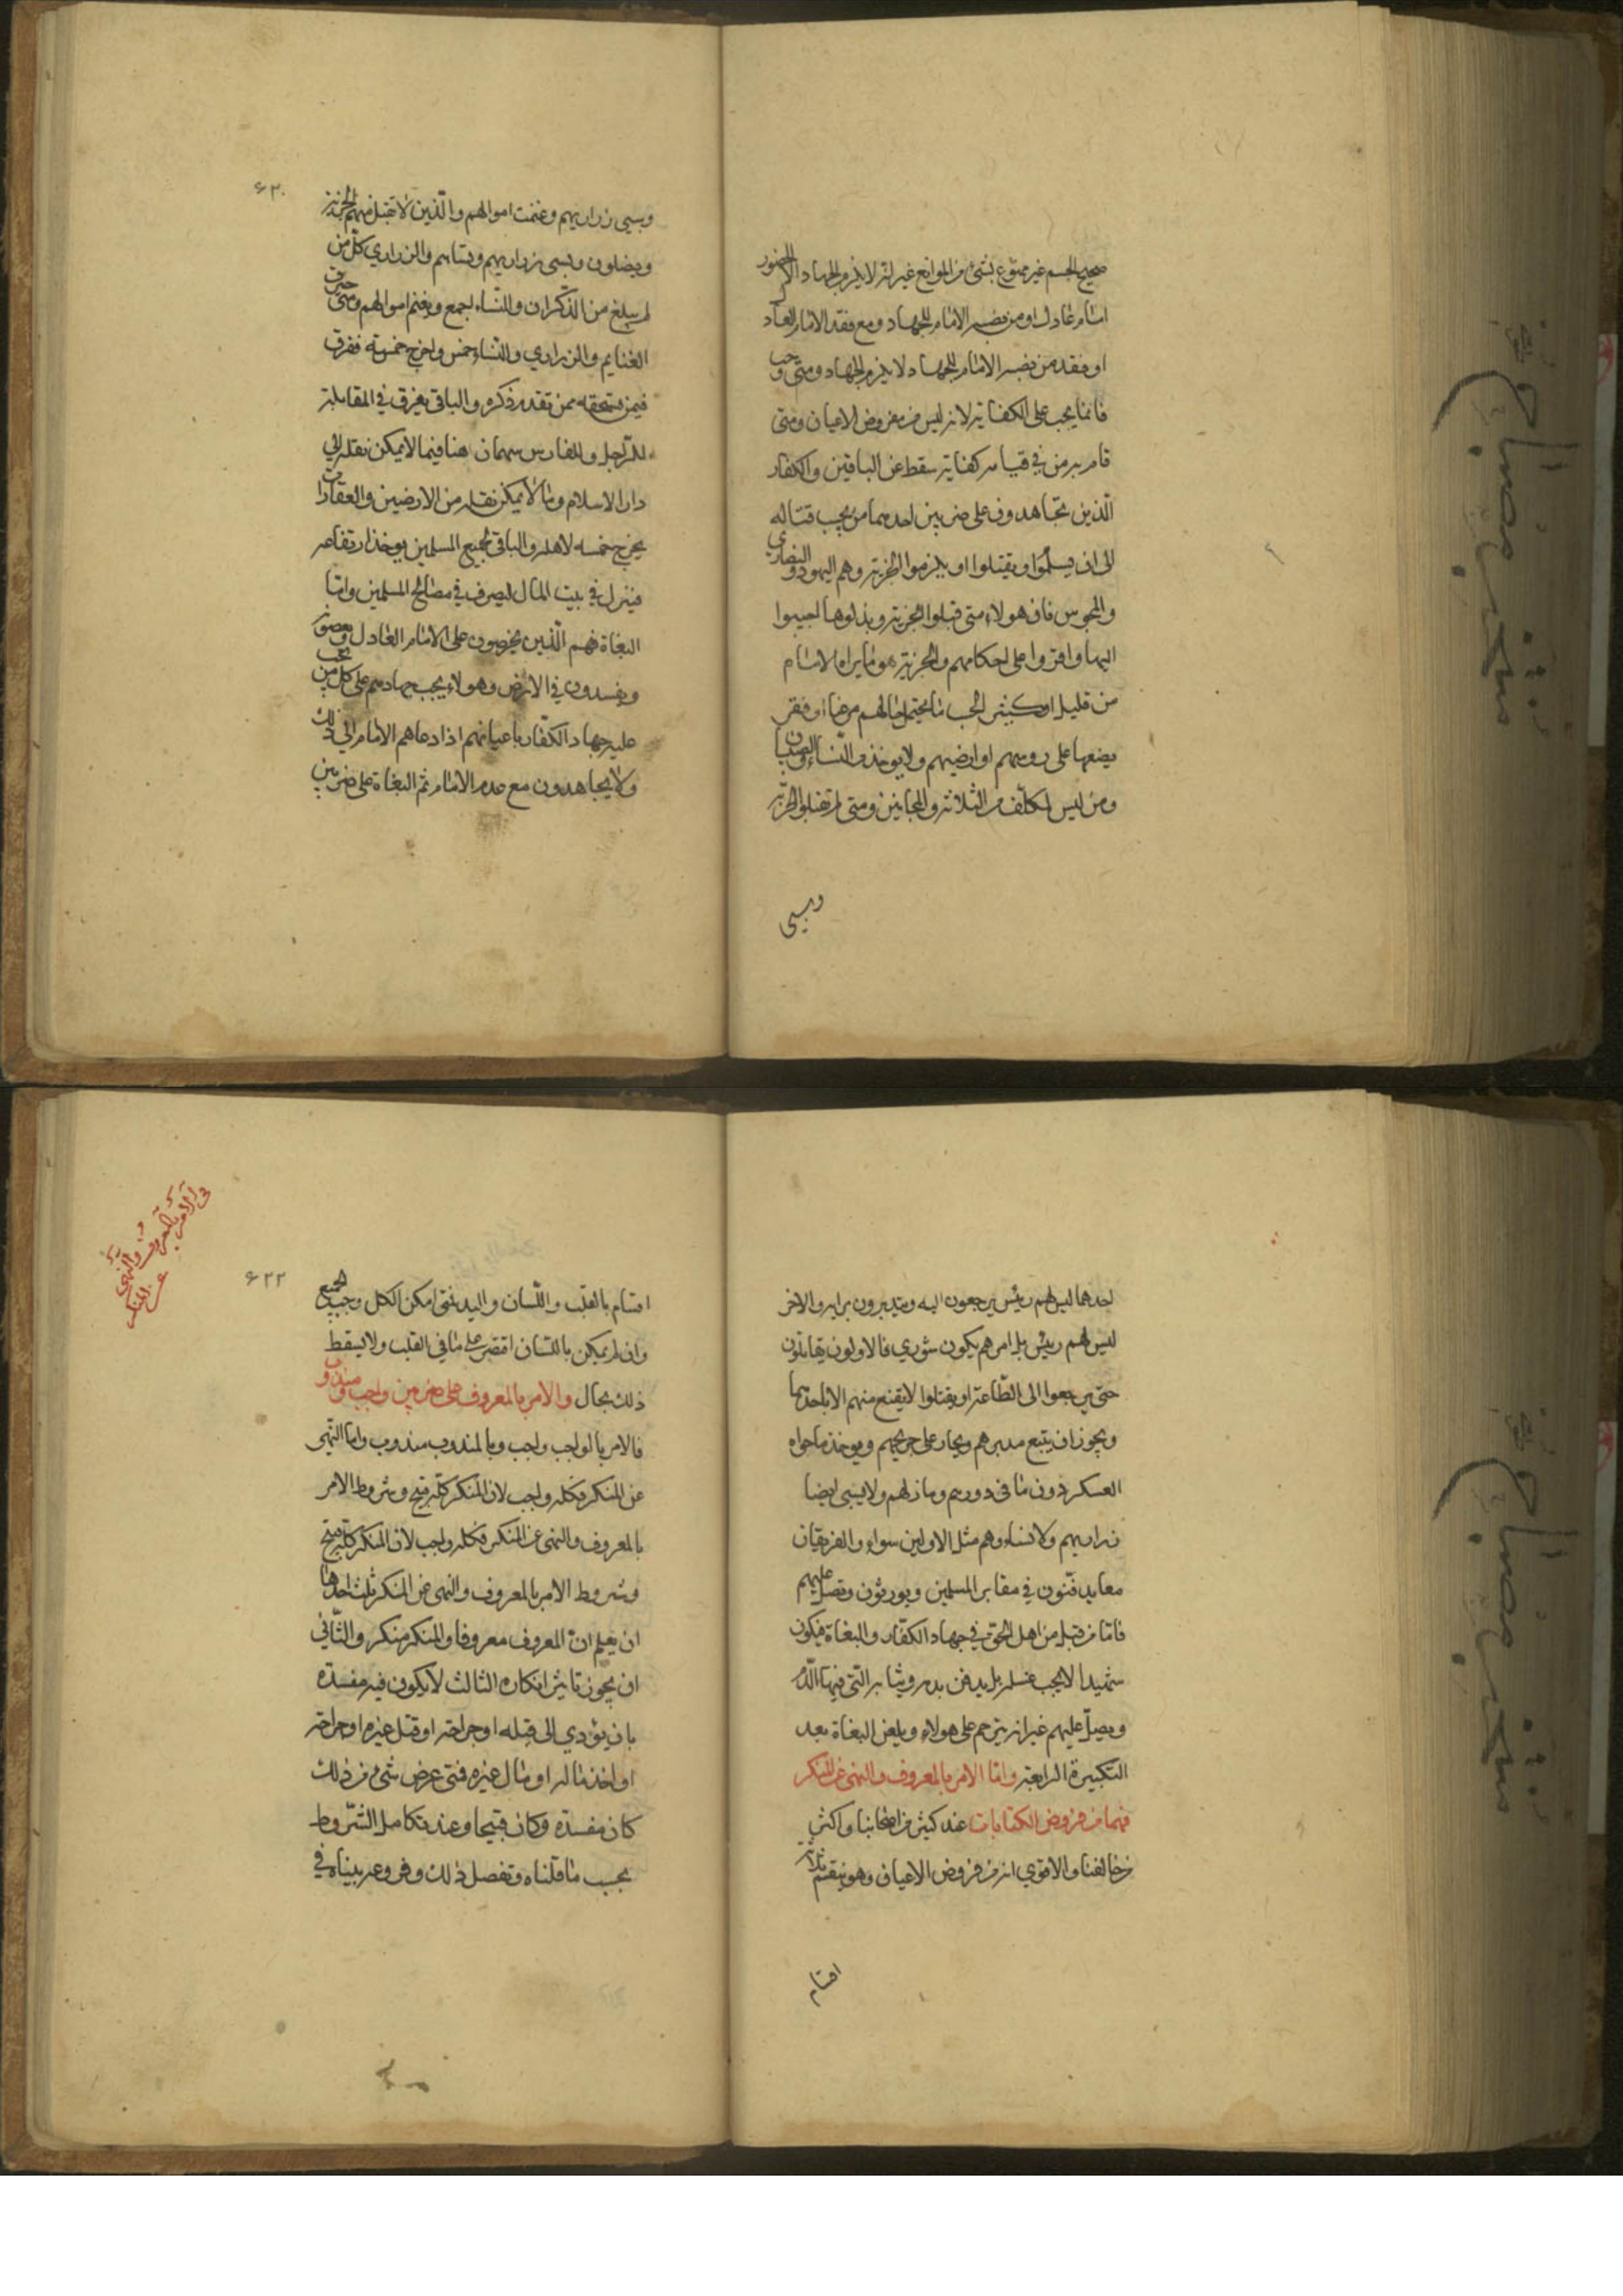 صحيح الجسم غير ممنوع بشئ من الموانع غير انه لا يلزم الجهاد الا بحضور
امام عادل او من نصبه الامام للجهاد ومع فقد الامام العاد
او فقد من نصبه الامام للجهاد لا يلزم الجهاد ومتى وجب
فانما يجب على الكفاية لانه ليس من فروض الاعيان ومتى
قام به من في قيامه كفاية سقط عن الباقين والكفار
الذين يجاهدون على ضربين احدهما من يجب قتاله
الى ان يسلموا او يقتلوا او يلزموا الجزية وهم اليهود والنصارى
والمجوس فان هولاء متى قبلوا الجزية وبذلوها اجيبوا
اليها واقروا على احكامهم والجزية هو ما يراه الامام
من قليل او كثير بحسب ما يحتمل حالهم من غنا او فقر
يضعها على روسهم او ارضيهم ولا يوخذ من النساء والصبيان
ومن ليس بمكلف من الثلاثة والمجانين ومتى لم تقبلوا الجزية
وسبى
۶۲۰
وسبى ذراريهم وغنمت اموالهم والذين لا تقبل منهم الجزية
ويصلون وسبى ذراريهم ونساهم والذراري كل من
لم يبلغ من الذكران والنساء اجمع ويغنم اموالهم ومتى حيزت
الغنايم والذراري والنساء خمس واخرج خمسه ففرق
فيمن يستحقه ممن تقدم ذكره والباقي يفرق في المقاتلة
للراجل وللفارس سهمان هنا فيما لا يمكن نقله الى
دار الاسلام وما لا يمكن نقله من الارضين والعقارات
يخرج خمسه لاهله والباقي لجميع المسلمين يوخذ ارتفاعه
فينزل في بيت المال ليصرف في مصالح المسلمين واما
البغاة فهم الذين يخرجون على الامام العادل ويعصونه
ويفسدون في الارض وهولاء يجب جهادهم على كل من يجب
عليه جهاد الكفار باعيانهم اذا دعاهم الامام الى ذلك
ولا يجاهدون مع عدم الامام ثم البغاة على ضربين
احدهما ليس لهم رئيس يرجعون اليه ويتدبرون برايه والاخر
ليس لهم رييس بل امرهم يكون شوري فالاولون يقاتلون
حتى يرجعوا الى الطاعة او يقتلوا لا يقنع منهم الا باحدهما
ويجوز ان يتبع مدبرهم ويجاز على جريحهم ويوخذ ما حواه
العسكر دون ما في دورهم ومنازلهم ولا يسبى ايضا
ذراريهم ولا نساءهم مثل الاولين سواء والفريقان
معا يدفنون في مقابر المسلمين ويورثون ويصلى عليهم
فاما من قتل من اهل الحق في جهاد الكفار والبغاة فيكون
شهيدا لا يجب غسله بل يدفن بدمه وثيابه التي فيها الدم
ويصلى عليهم غير انه يترحم على هولاء ويلعن البغاة بعد
التكبيرة الرابعة واما الامر بالمعروف والنهى عن المنكر
فهما من فروض الكفايات عند كثير من اصحابنا واكثر
من خالفنا والاقوي انه من فروض الاعيان وهو ينقسم ثلاثة
اقسام
في الامر بالمعروف والنهى
عن المنكر
۶۲۲
اقسام بالقلب واللسان واليد فمتى امكن الكل وجب الجميع
وان لم يمكن باللسان اقتصر على ما في القلب ولا يسقط
ذلك بحال والامر بالمعروف على ضربين واجب ومندوب
فالامر بالواجب واجب وبالمندوب مندوب واما النهى
عن المنكر فكله واجب لان المنكر كله قبيح وشروط الامر
بالمعروف والنهى عن المنكر فكله واجب لان المنكر كله قبيح
وشروط الامر بالمعروف والنهى عن المنكر ثلث احدها
ان يعلم ان المعروف معروفا والمنكر منكر والثاني
ان يجوز تاثير انكاره الثالث لا يكون فيه مفسدة
بان يؤدي الى قتله او جراحته او قتل غيره او جراحته
او اخذ ماله او مال غيره فمتى عرض شئ من ذلك
كان مفسدة وكان قبيحا وعند تكامل الشروط
يجب ما قلناه وتفصيل ذلك وفروعه بيناه في